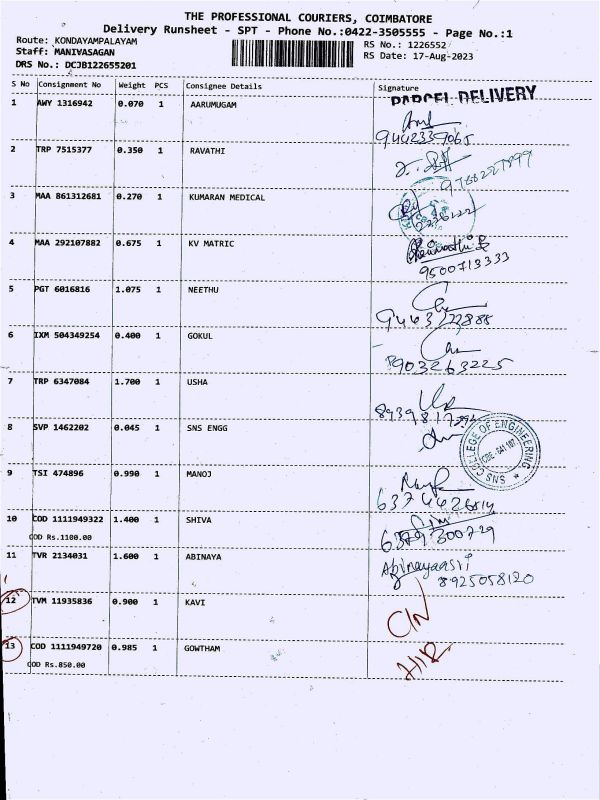 THE PROFESSIONAL COURIERS, COIMBATORE
Delivery Runsheet - SPT - Phone No.:0422-3505555 - Page No.:1
Route: KONDAYAMPALAYAM
RS No.: 1226552
Staff: MANIVASAGAN
RS Date: 17-Aug-2023
DRS No.: DCJB122655201
S No Consignment No Weight PCS Consignee Details Signature
PARCEL DELIVERY
1 AWY 1316942 0.070 1 AARUMUGAM
9442339065
2 TRP 7515377 0.350 1 RAVATHI
9766227899
3 MAA 861312681 0.270 1 KUMARAN MEDICAL
2236222
4 MAA 292107882 0.675 1 KV MATRIC
9500713333
5 PGT 6016816 1.075 1 NEETHU
9443722888
6 IXM 504349254 0.400 1 GOKUL
8903263225
7 TRP 6347084 1.700 1 USHA
8 SVP 1462202 0.045 1 SNS ENGG
SNS COLLEGE OF ENGINEERING
9 TSI 474896 0.990 1 MANOJ
10 COD 1111949322 1.400 1 SHIVA
6379300729
COD Rs.1100.00
11 TVR 2134031 1.600 1 ABINAYA
Abinayaasri
8925058120
12 TVM 11935836 0.900 1 KAVI
C/N
13 COD 1111949720 0.985 1 GOWTHAM
COD Rs.850.00